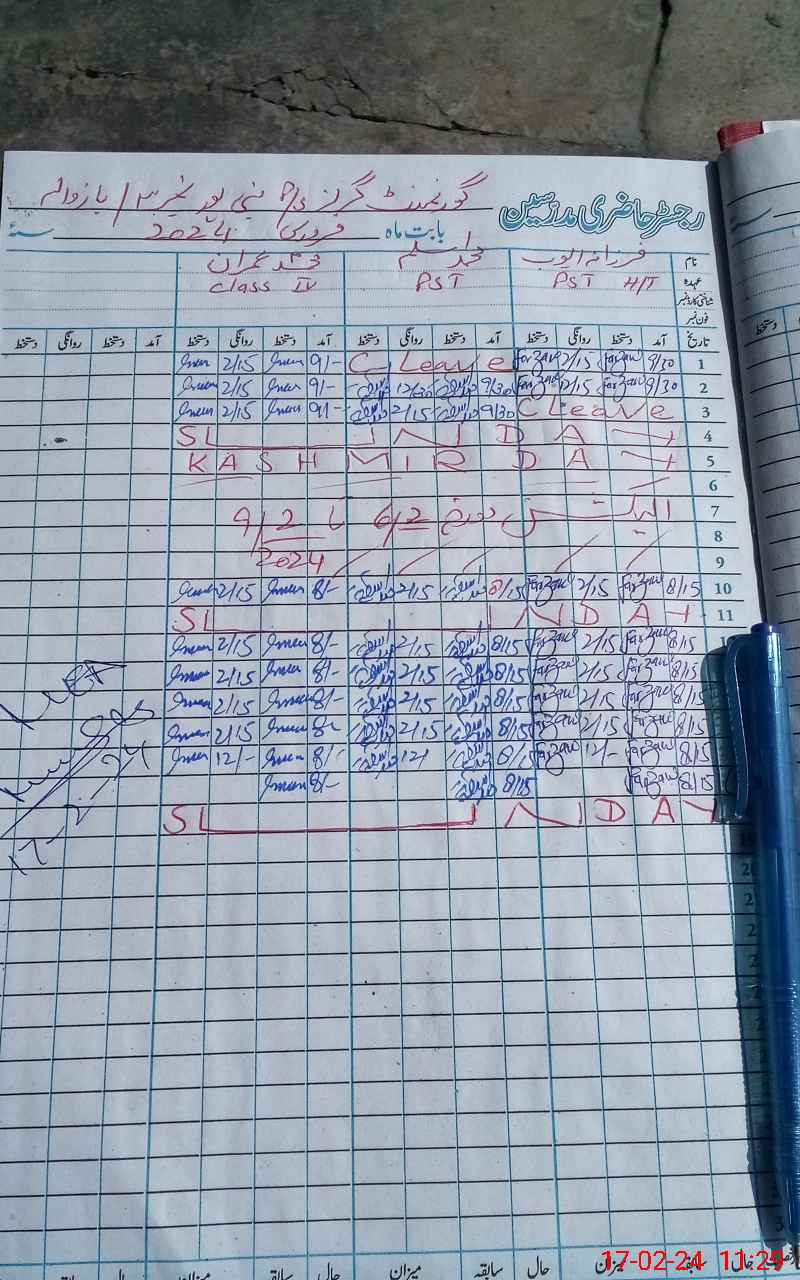 رجسٹر حاضری مدرسین گورنمنٹ گرلز P/S نبی پور نمبر ۳ / بازوالہ
بابت ماہ فروری 2024 سنہ
نام فرزانہ ایوب محمد اسلم محمد عمران
عہدہ PST H/T PST Class IV
شناختی کارڈ نمبر
فون نمبر
تاریخ آمد دستخط روانگی دستخط آمد دستخط روانگی دستخط آمد دستخط روانگی دستخط آمد دستخط روانگی دستخط
1 9/30 Farzana 2/15 Farzana C, Leave 9/- Imran 2/15 Imran
2 9/30 Farzana 12/15 Farzana 9/30 محمد اسلم 12/30 محمد اسلم 9/- Imran 2/15 Imran
3 C Leave 9/30 محمد اسلم 2/15 محمد اسلم 9/- Imran 2/15 Imran
4 SUNDAY
5 KASHMIR DAY
6
7 الیکشن مورخ 6/2 تا 9/2
8 2024
9
10 8/15 Farzana 2/15 Farzana 8/15 محمد اسلم 2/15 محمد اسلم 8/- Imran 2/15 Imran
11 SUNDAY
8/15 Farzana 2/15 Farzana 8/15 محمد اسلم 2/15 محمد اسلم 8/- Imran 2/15 Imran
8/15 Farzana 2/15 Farzana 8/15 محمد اسلم 2/15 محمد اسلم 8/- Imran 2/15 Imran
8/15 Farzana 2/15 Farzana 8/15 محمد اسلم 2/15 محمد اسلم 8/- Imran 2/15 Imran
8/15 Farzana 2/15 Farzana 8/15 محمد اسلم 2/15 محمد اسلم 8/- Imran 2/15 Imran
8/15 Farzana 12/- Farzana 8/15 محمد اسلم 12/ محمد اسلم 8/- Imran 12/- Imran
8/15 Farzana 8/15 محمد اسلم 8/- Imran
SUNDAY
MEA
17-2-24
سابقہ حال میزان سابقہ حال میزان سابقہ حال
17-02-24 11:29